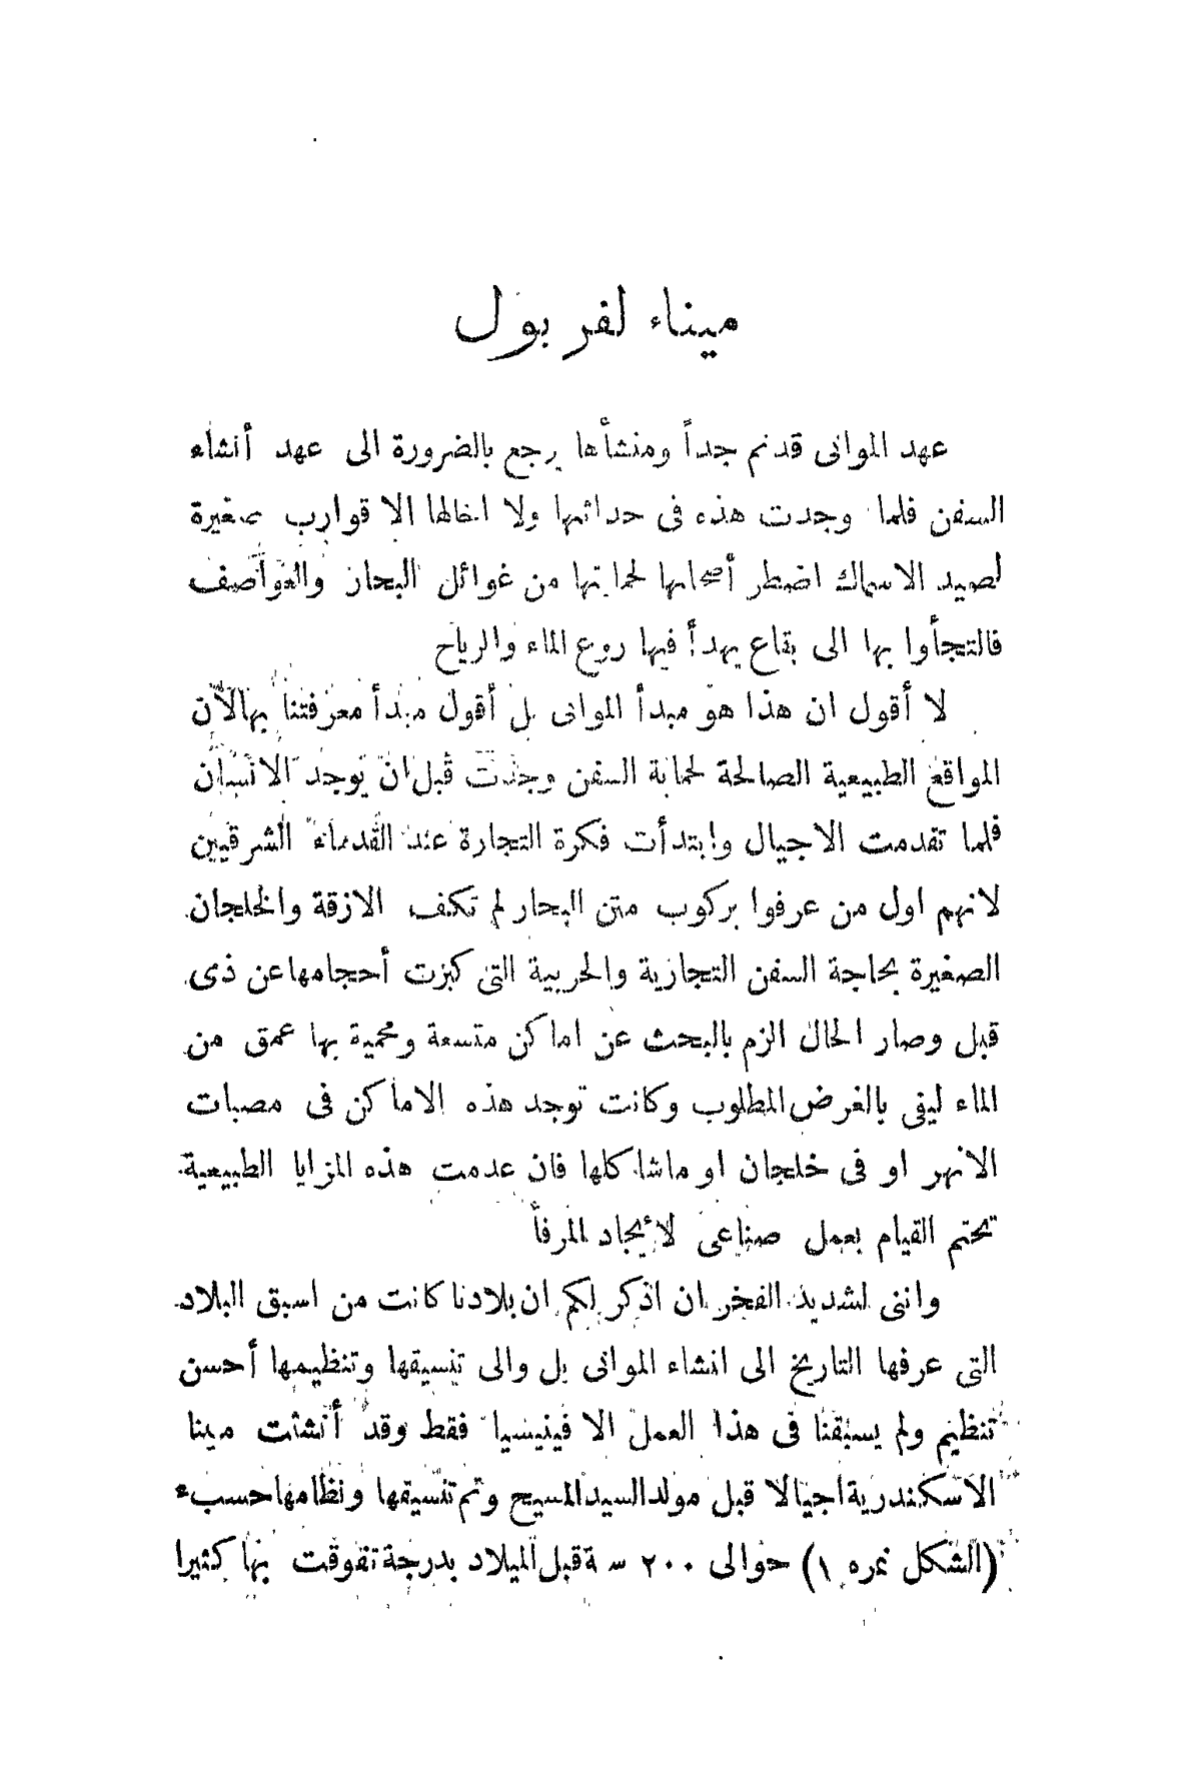 ميناء لفربول
عهد الموانى قديم جداً ومنشأها يرجع بالضرورة الى عهد أنشاء
السفن فلما وجدت هذه فى حداثتها ولا اخالها الا قوارب صغيرة
لصيد الاسماك اضطر أصحابها لحمايتها من غوائل البحار والعواصف
فالتجأوا بها الى بقاع يهدأ فيها روع الماء والرياح
لا أقول ان هذا هو مبدأ الموانى بل أقول مبدأ معرفتنا بها لأن
المواقع الطبيعية الصالحة لحماية السفن وجدت قبل ان يوجد الانسان
فلما تقدمت الاجيال وابتدأت فكرة التجارة عند القدماء الشرقيين
لانهم اول من عرفوا بركوب متن البحار لم تكف الازقة والخلجان
الصغيرة بحاجة السفن التجارية والحربية التى كبرت أحجامها عن ذى
قبل وصار الحال الزم بالبحث عن اماكن متسعة ومحمية بها عمق من
الماء ليفى بالغرض المطلوب وكانت توجد هذه الاماكن فى مصبات
الانهر او فى خلجان او ماشاكلها فان عدمت هذه المزايا الطبيعية
تحتم القيام بعمل صناعى لايجاد المرفأ
واننى لشديد الفخر ان اذكر لكم ان بلادنا كانت من اسبق البلاد
التى عرفها التاريخ الى انشاء الموانى بل والى تنسيقها وتنظيمها أحسن
تنظيم ولم يسبقنا فى هذا العمل الا فينيسيا فقط وقد أنشئت مينا
الاسكندرية اجيالا قبل مولد السيد المسيح وتم تنسيقها ونظامها حسب
(الشكل نمره ١) حوالى ٢٠٠ سنة قبل الميلاد بدرجة تفوقت بها كثيرا